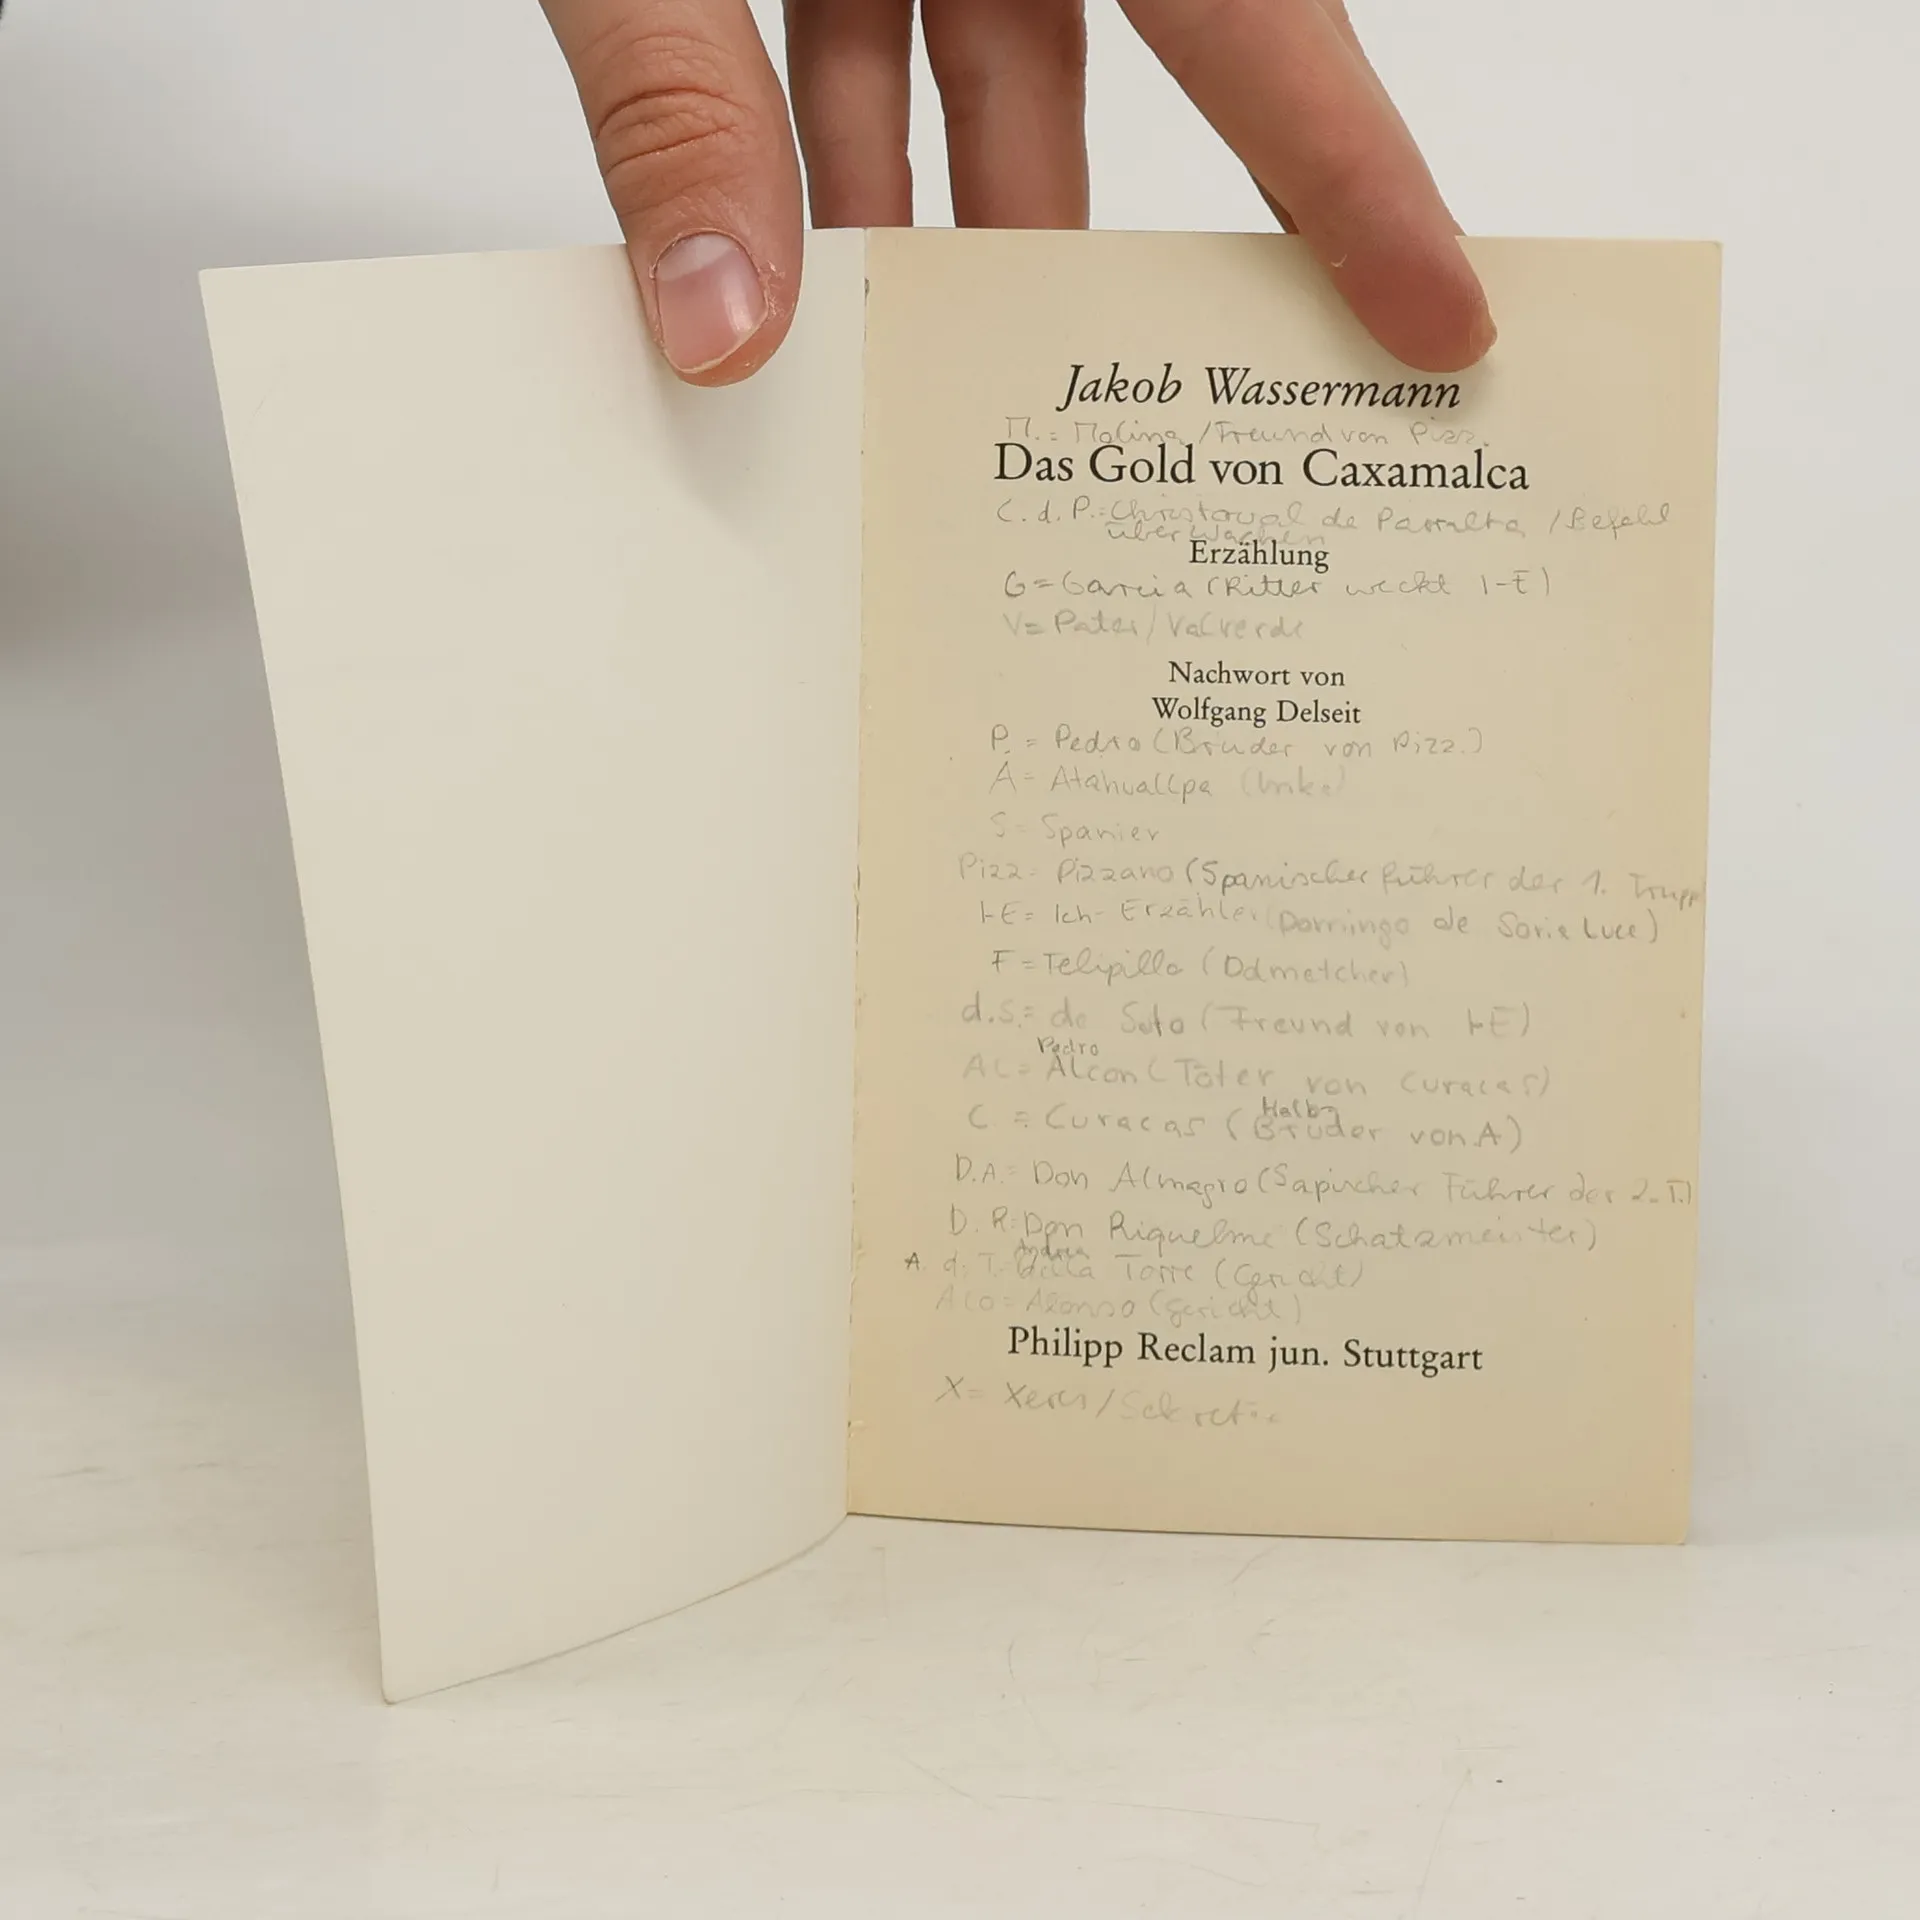 Jakob Wassermann
M. = Molina / Freund von Pizz.
Das Gold von Caxamalca
C. d. P. = Christoval de Parralta / Befehl
über Wachen
Erzählung
G = Garcia (Ritter weckt I-E)
V = Pater / Valverde
Nachwort von
Wolfgang Delseit
P. = Pedro (Bruder von Pizz.)
A = Atahuallpa (Inka)
S = Spanier
Pizz = Pizzaro (Spanischer Führer der 1. Trupp
I-E = Ich-Erzähler (Domingo de Soria Luce)
F = Felipillo (Dolmetcher)
d.S. = de Soto (Freund von I-E)
Pedro
AL = Alcon (Täter von Curacas)
Halb
C. = Curacas (Bruder von A)
D.A. = Don Almagro (Sapischer Führer der 2. T.)
D. R. = Don Riquelme (Schatzmeister)
Andrea
A. d. T. = della Torre (Gericht)
Alo = Alonso (Gericht)
Philipp Reclam jun. Stuttgart
X = Xeres / Sekretär